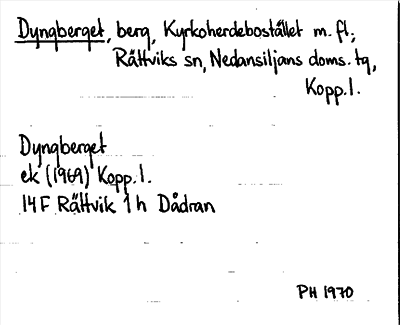 Dyngberget, berg, Kyrkoherdebostället m. fl.,
Rättviks sn, Nedansiljans doms. tg,
Kopp. l.
Dyngberget
ek (1969) Kopp. l.
14F Rättvik 1 h Dådran
PH 1970